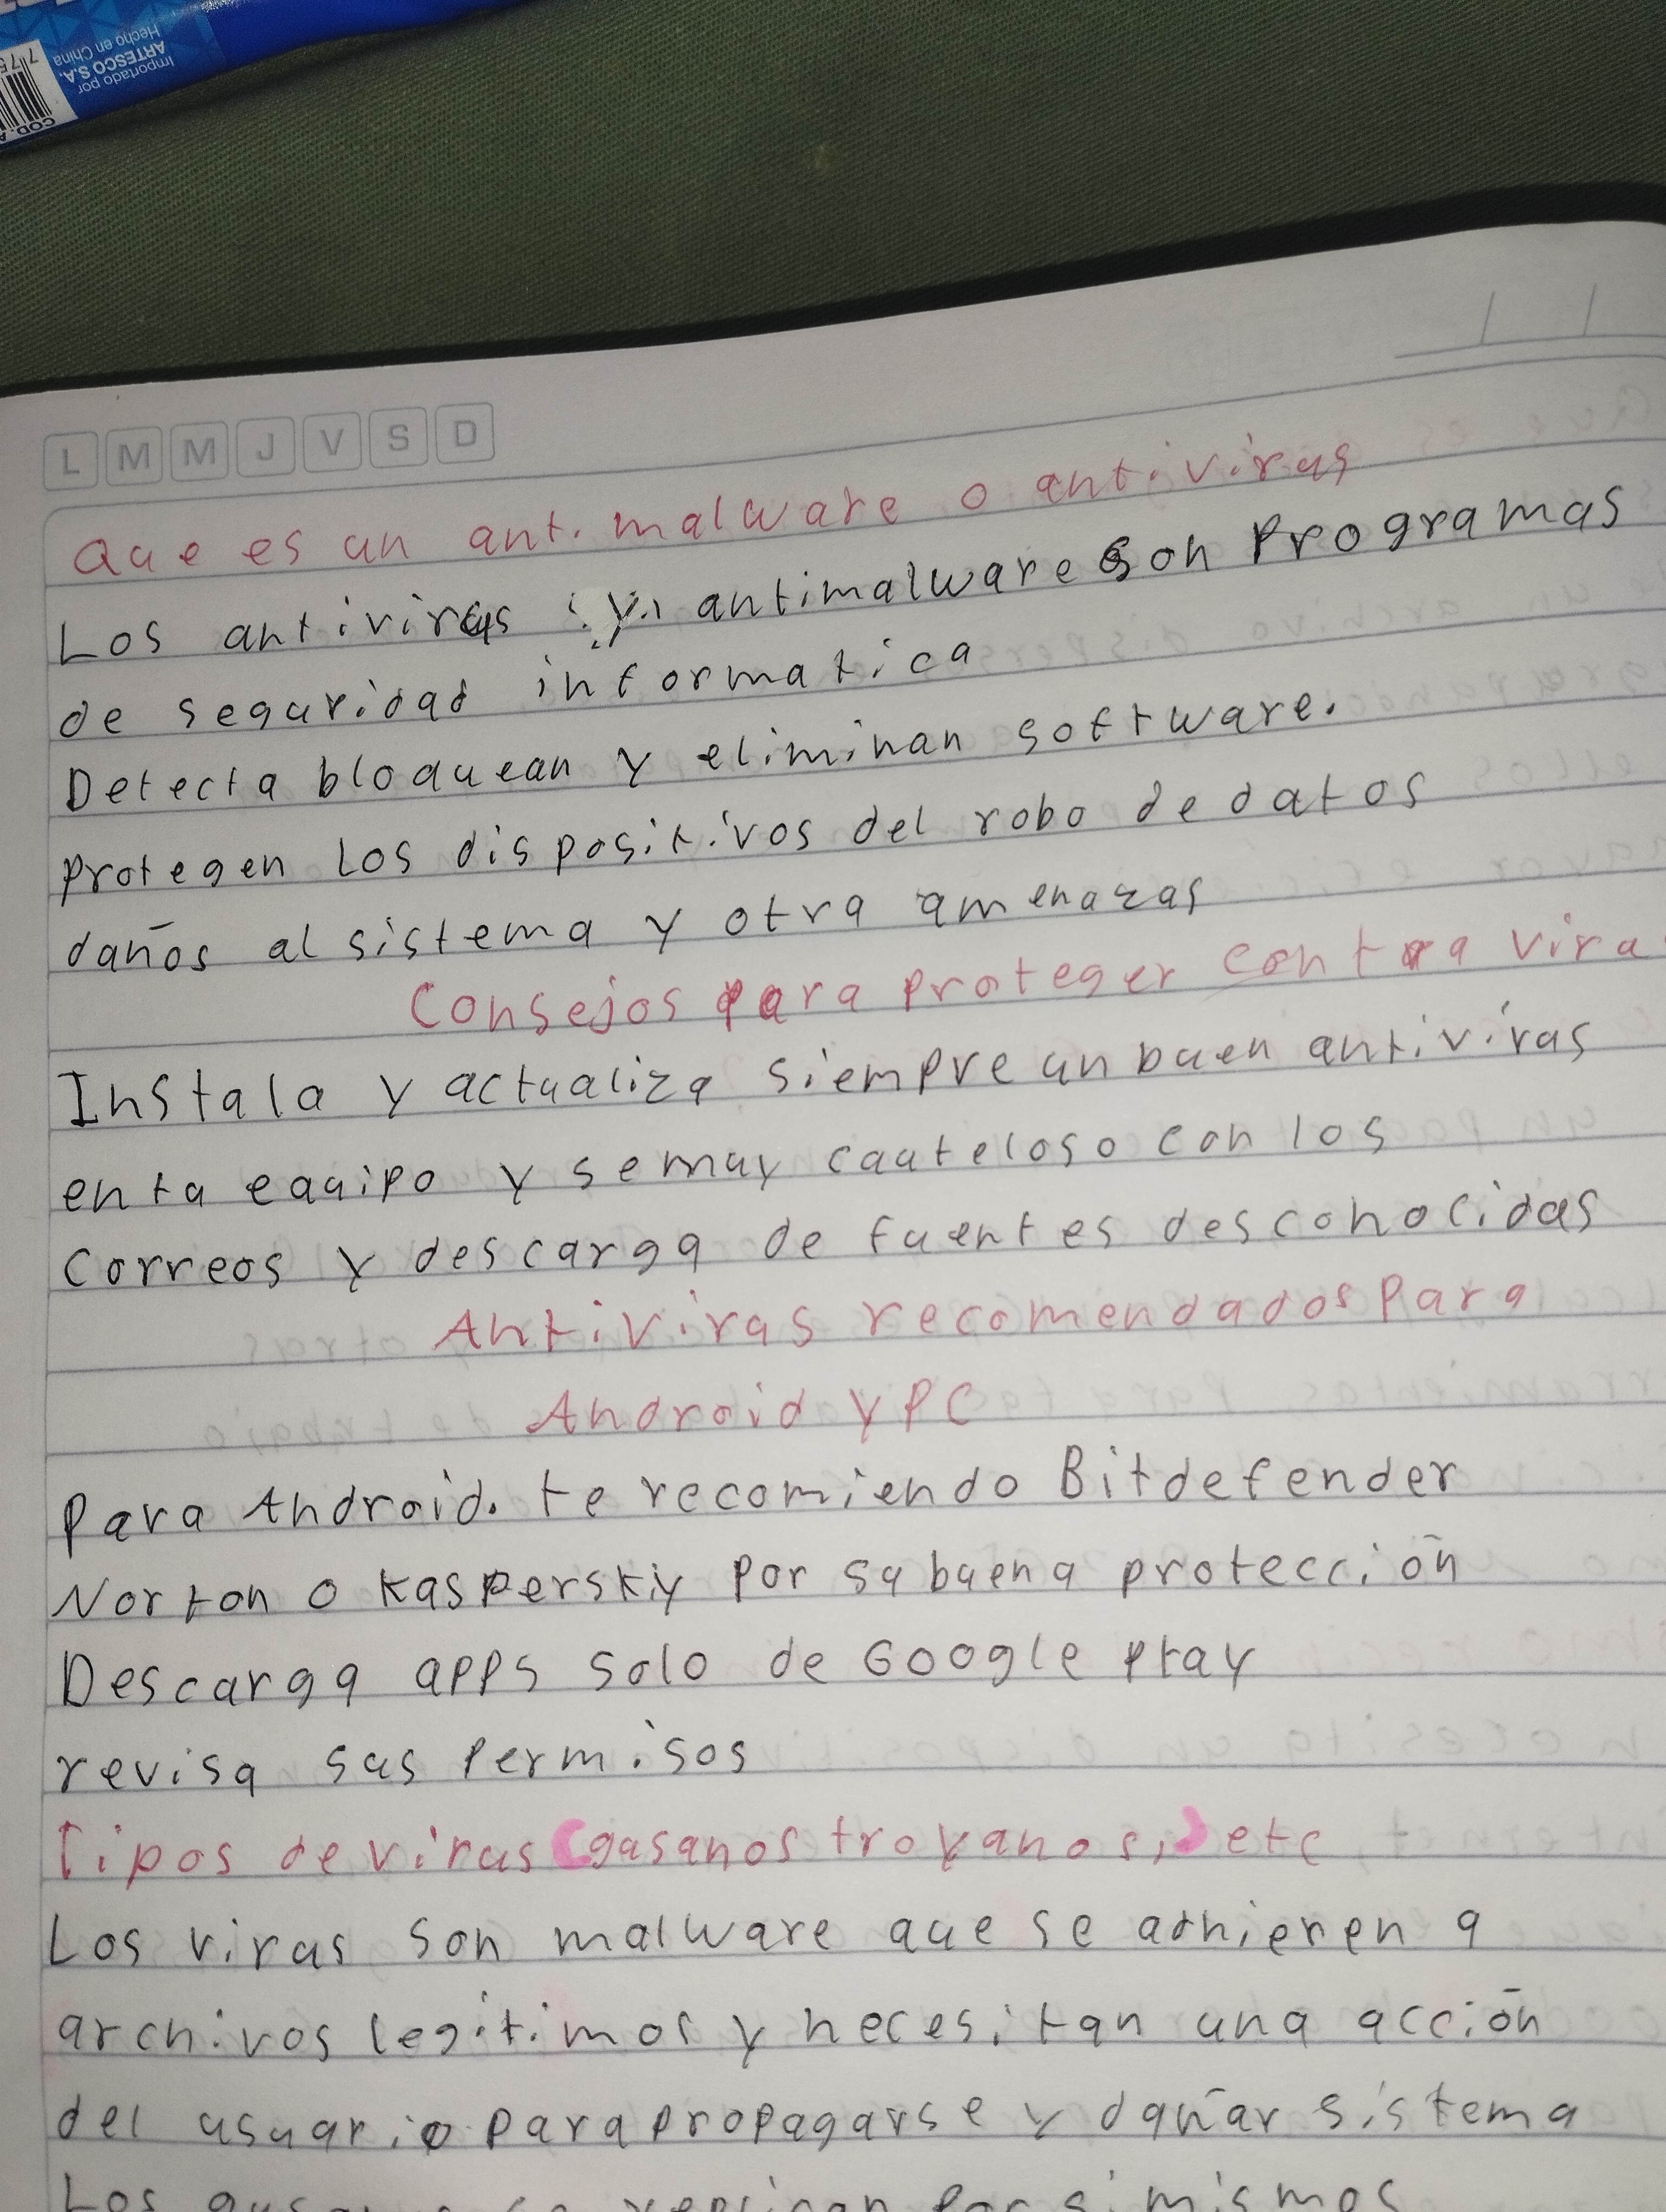 Importado por
ARTESCO S.A.
Hecho en China
COD. A
775
L M M J V S D
Que es un antimalware o antivirus
Los antivirus y antimalware son Programas
de seguridad informatica
Detecta bloquean y eliminan software.
protegen los dispositivos del robo de datos
daños al sistema y otra amenazas
Consejos para proteger contra viru
Instala y actualiza siempre un buen antivirus
en tu equipo y se muy cauteloso con los
Correos y descarga de fuentes desconocidas
Antivirus recomendados Para
Android y PC
Para Android. te recomiendo Bitdefender
Norton o Kasperskiy por su buena protección
Descarga apps solo de Google Play
revisa sus permisos
Tipos de virus (gusanos troyanos,) etc
Los virus son malware que se adhieren a
archivos legitimos y necesitan una acción
del usuario para propagarse y dañar sistema
Los se replican por si mismos